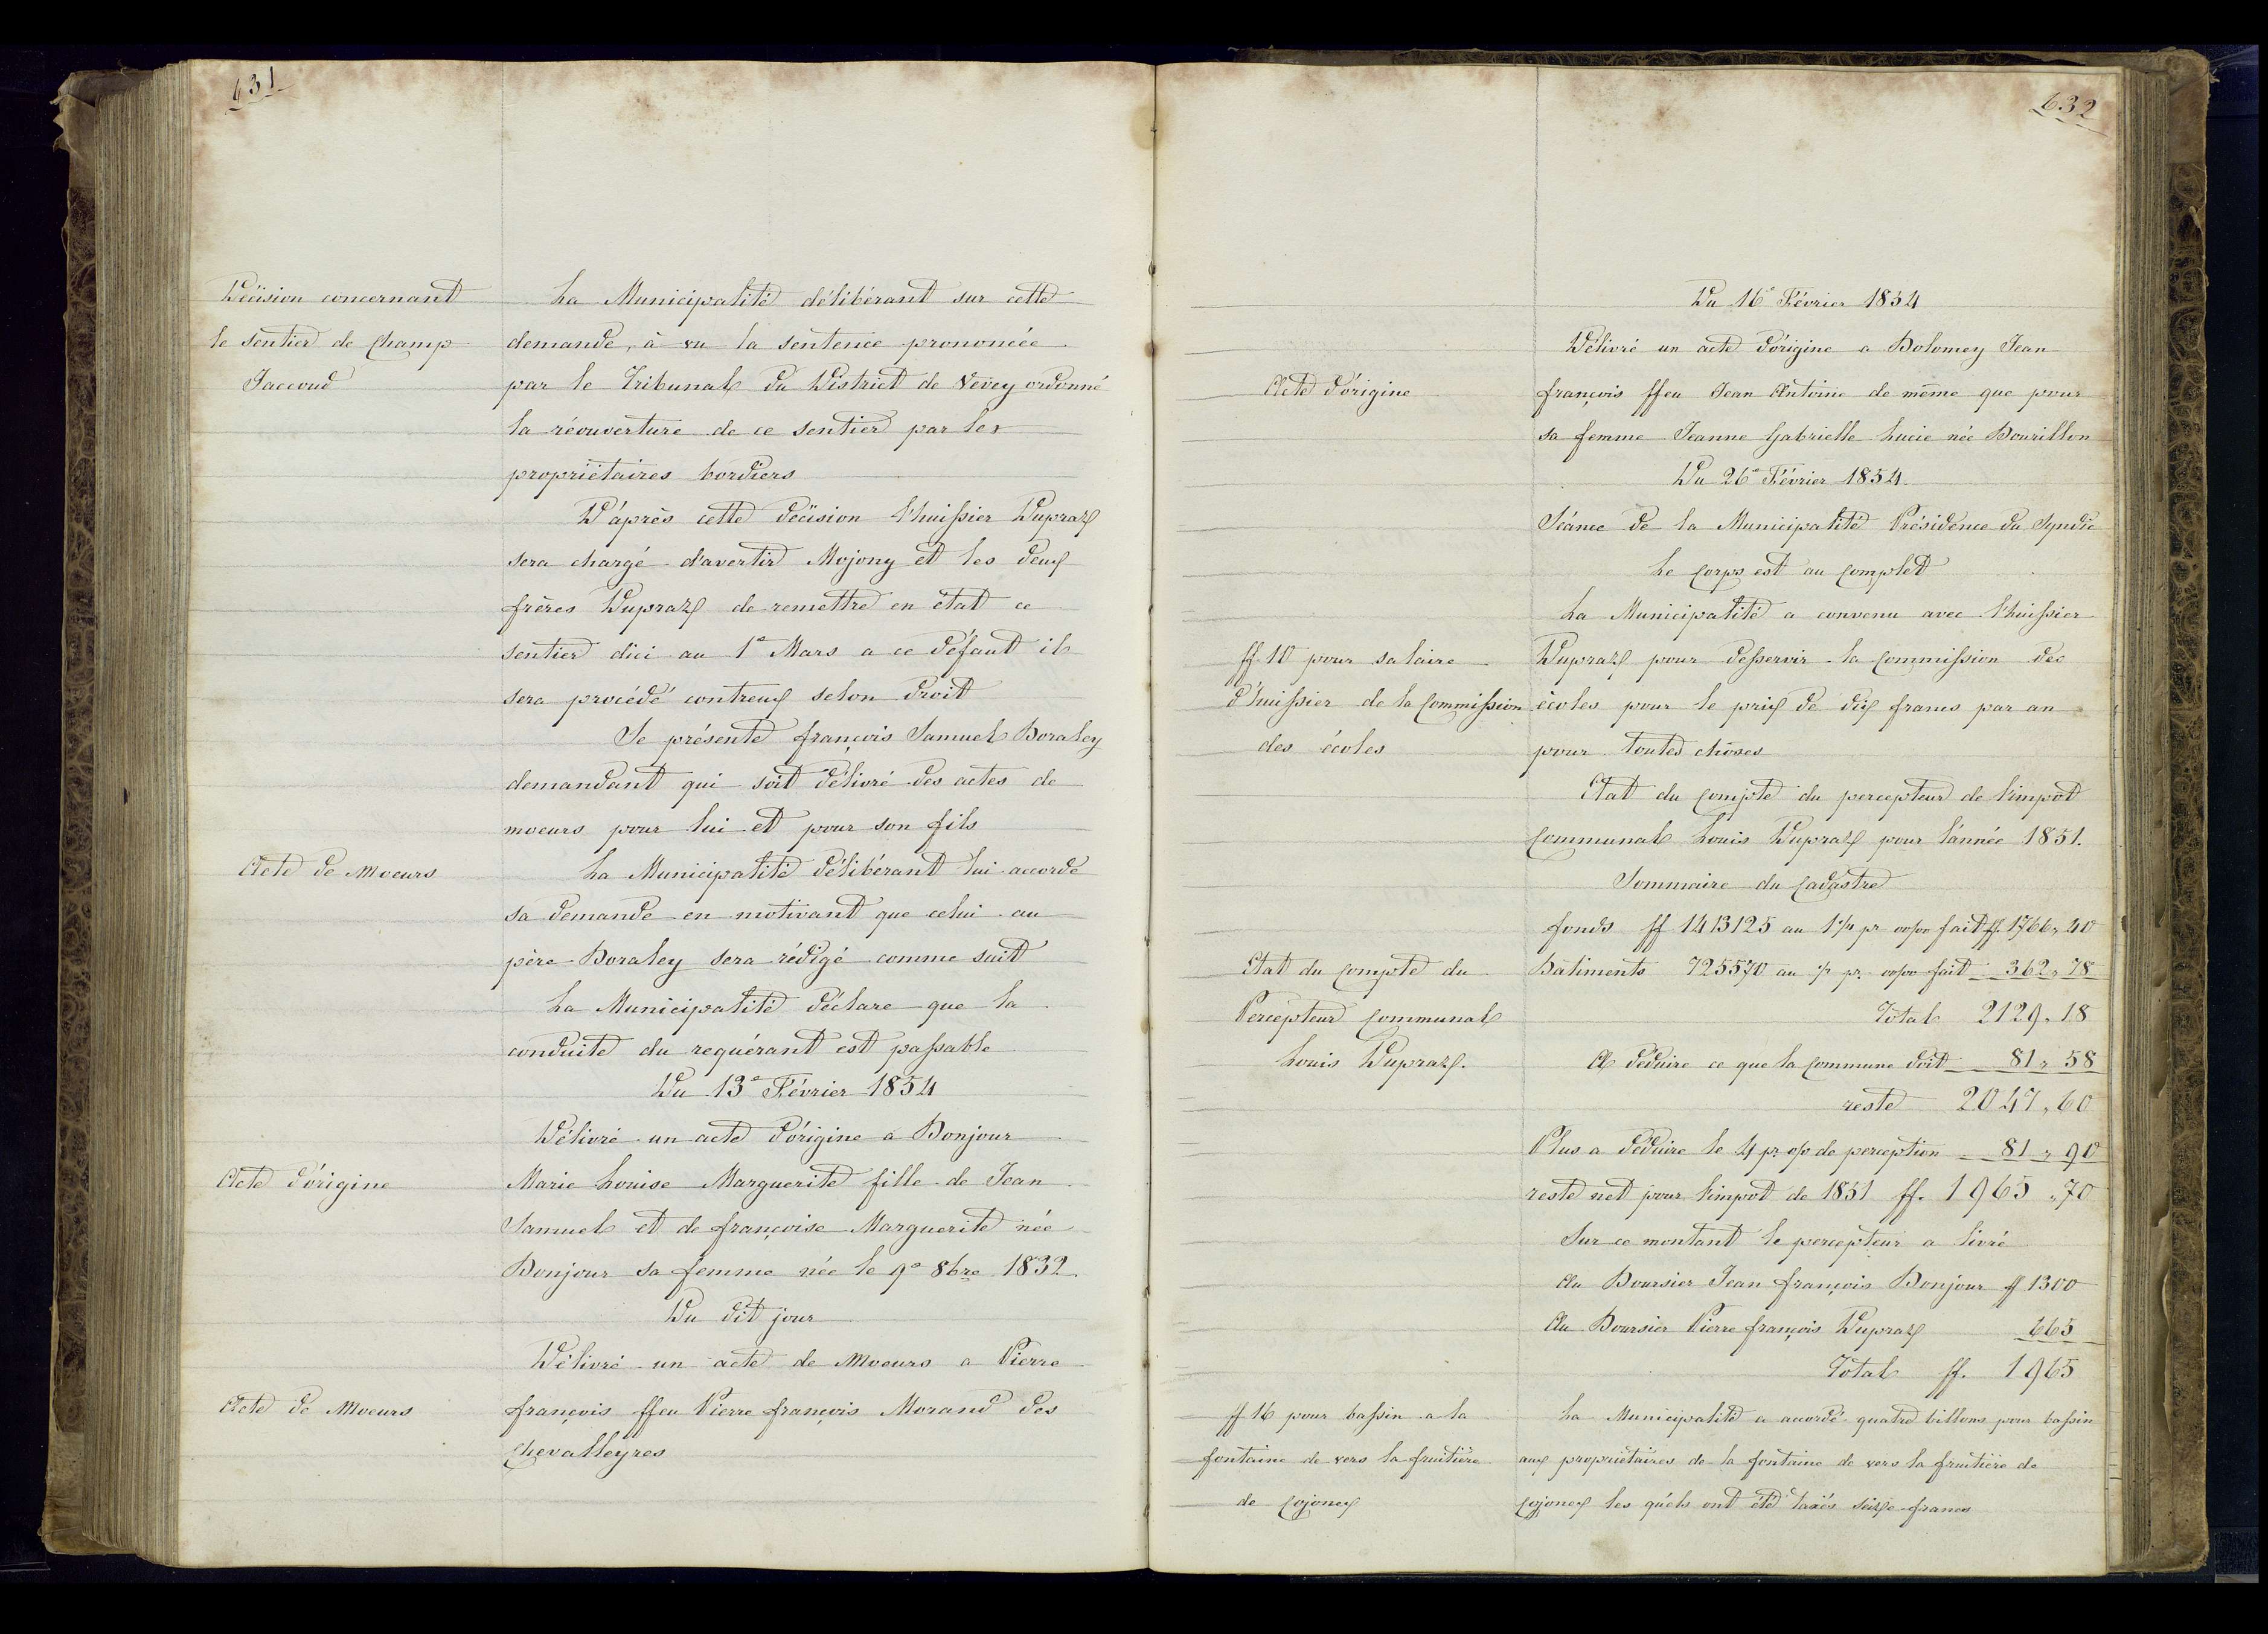 631
Décision concernant
le sentier de Champ
Jaccoud
La Municipalité délibérant sur cette
demande, à vu la sentence prononcée
par le Tribunal du District de Vevey ordonné
la réouverture de ce sentier par les
propriètaires bordiers
D'après cette décision l'huissier Dupraz
sera chargé d'avertir Mojony et les deux
frères Dupraz de remettre en état ce
sentier d'ici au 1e Mars a ce défaut il
sera procédé contreux selon droit
Se présente françois Samuel Boraley
demandant qui soit délivré des actes de
moeurs pour lui et pour son fils
Acte de Moeurs
La Municipalité délibérant lui accorde
sa demande en motivant que celui au
père Boraley sera rédigé comme suit
La Municipalité déclare que la
conduite du requérant est passable
Du 13e Février 1854
Délivré un acte d'origine a Bonjour
Acte d'origine
Marie Louise Marguerite fille de Jean
Samuel et de françoise Marguerite née
Bonjour sa femme née le 9e 8bre 1832
Du dit jour
Délivré un acte de Moeurs a Pierre
Acte de Moeurs
françois ffeu Pierre françois Morand des
Chevalleyres
632
Du 16e Février 1854
Délivré un acte d'origine a Dolomey Jean
Acte d'origine
françois ffeu Jean Antoine de même que pour
sa femme Jeanne Gabrielle Lucie née Bourillon
Du 26e Février 1854.
Séance de la Municipalité Présidence du Syndic
Le Corps est au Complet
La Municipalité a convenu avec l'huissier
ff 10 pour salaire
d'huissier de la Commission
des écoles
Dupraz pour desservir la Commission des
écoles pour le prix de dix francs par an
pour toutes chôses
Etat du Compte du percepteur de l'impot
Communal Louis Dupraz pour l'année 1851.
Sommaire du Cadastre
fonds ff 1413125 au 1 1/4 pr oo/oo fait ff. 1766, 40
Etat du Compte du
Percepteur Communal
Louis Dupraz.
Batiments 725570 au 1/2 pr. oo/oo fait 362, 78
Total 2129, 18
A déduire ce que la Commune doit 81, 58
reste 2047, 60
Plus a déduire le 4 pr. o/o de perception 81, 90
reste net pour l'impot de 1851 ff. 1965, 70
Sur ce montant le percepteur a livré
Au Boursier Jean françois Bonjour ff 1300
Au Boursier Pierre françois Dupraz 665
Total ff. 1965
ff 16 pour bassin a la
fontaine de vers la fruitière
de Cojonex
La Municipalité a accordé quatre billons pour bassin
aux propriètaires de la fontaine de vers la fruitière de
Cojonex les quels ont été taxés seize francs